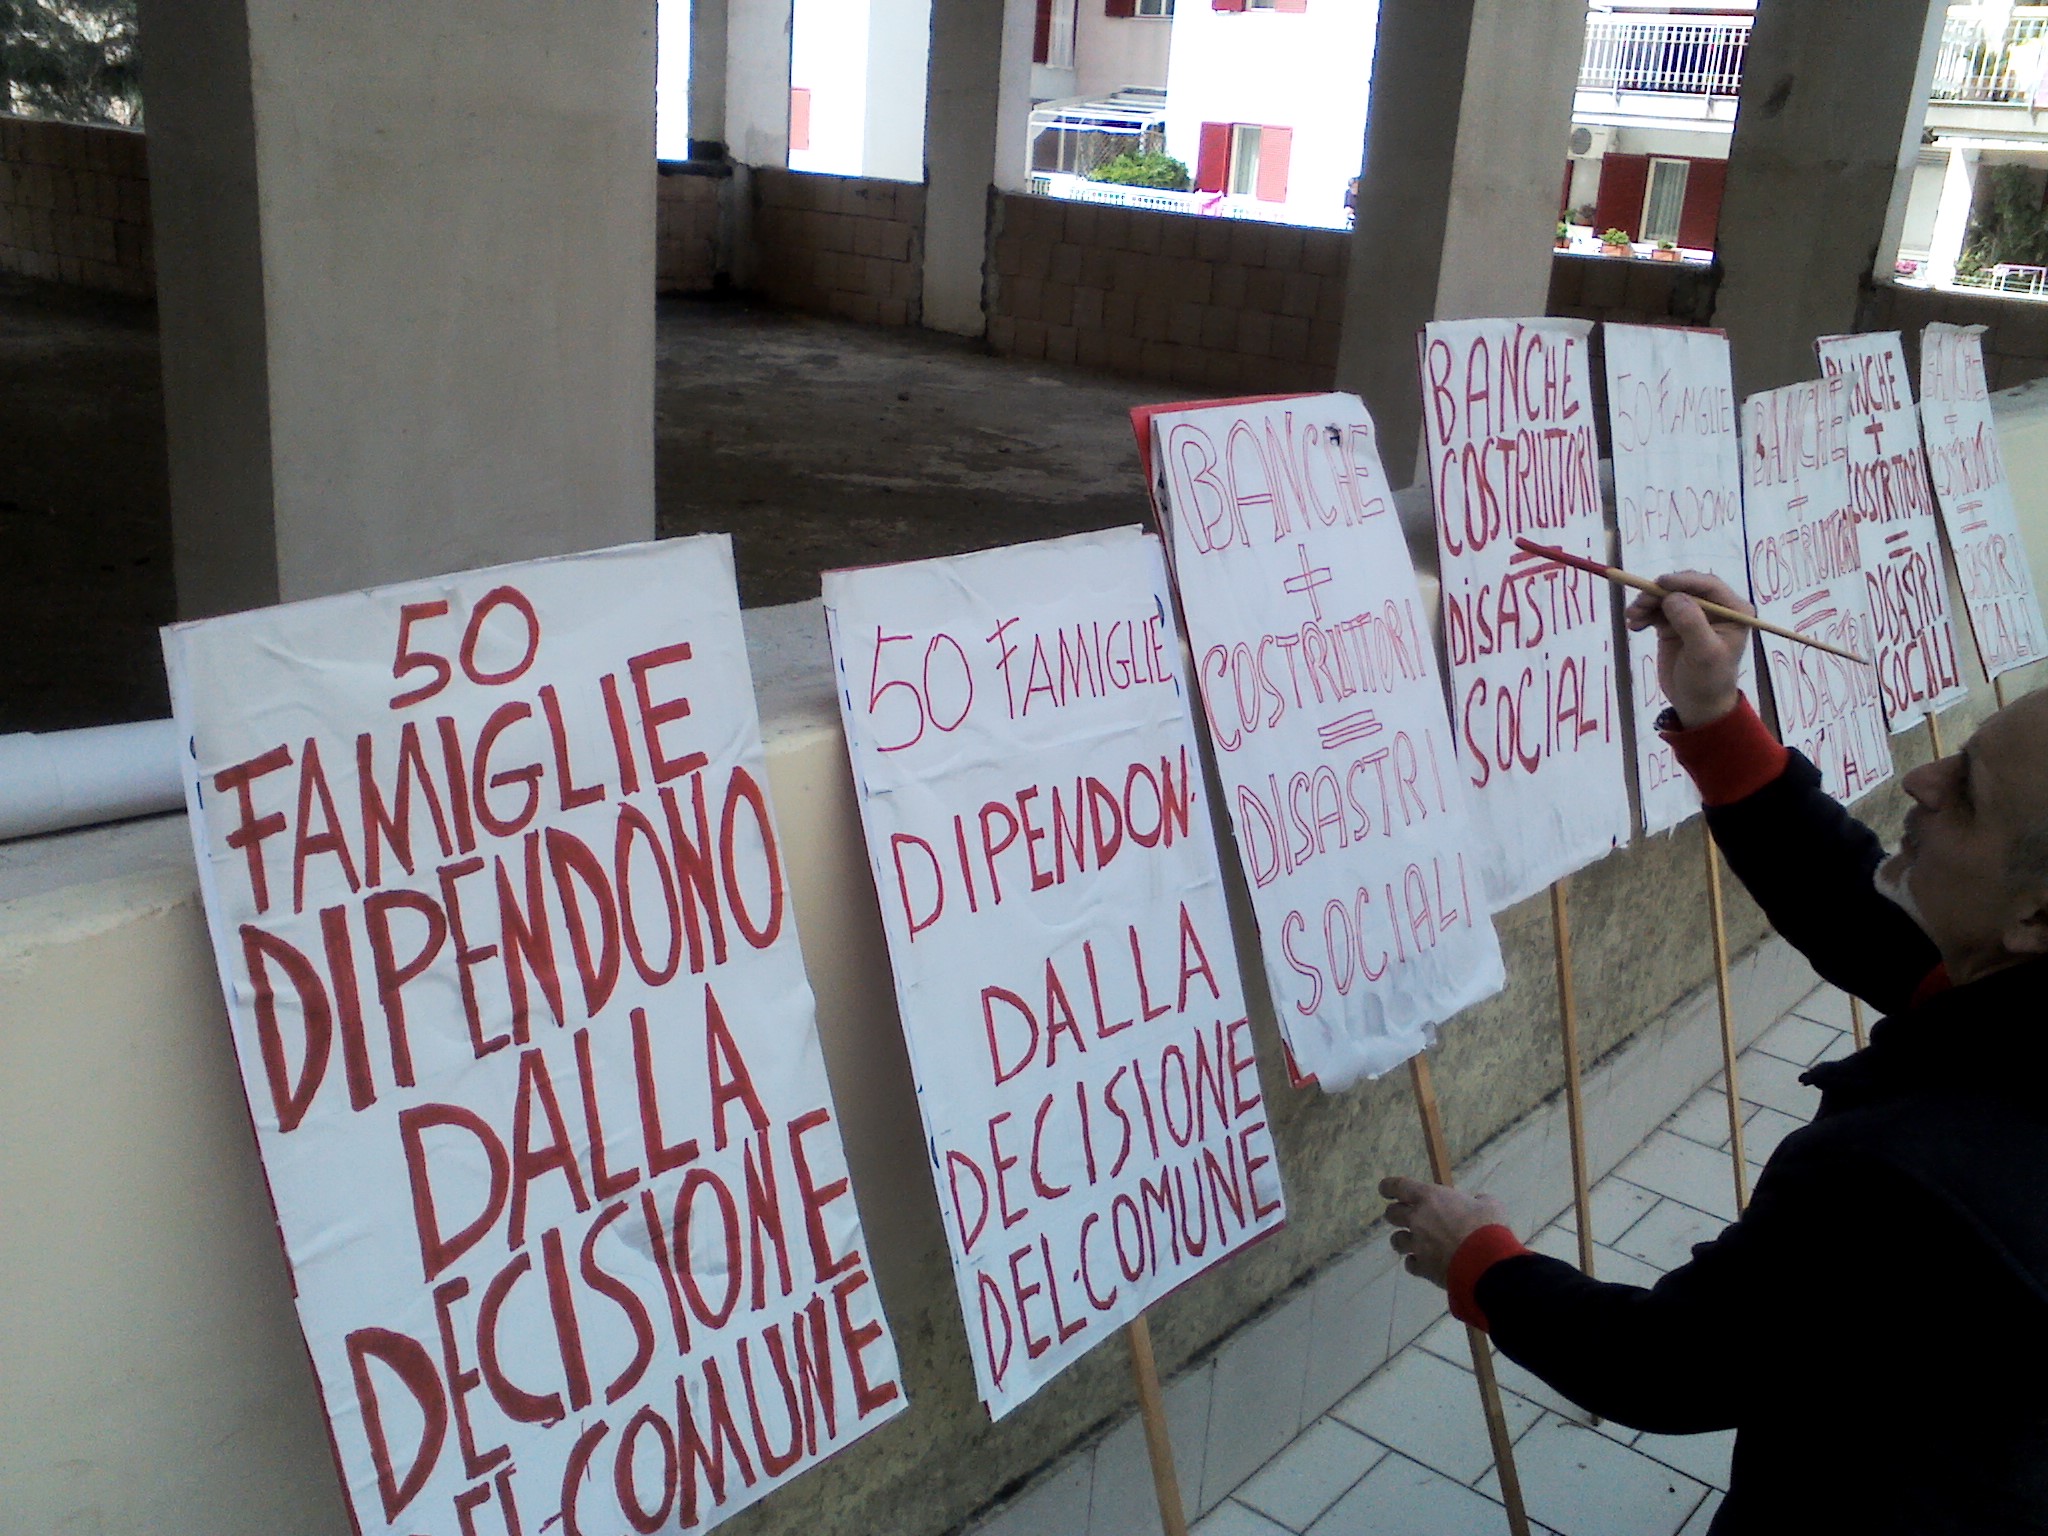 50
FAMIGLIE
DIPENDONO
DALLA
DECISIONE
DEL-COMUNE
50 FAMIGLIE
DIPENDON
DALLA
DECISIONE
DEL-COMUNE
BANCHE
+
COSTRUTTORI
=
DISASTRI
SOCIALI
BANCHE
COSTRUTTORI
=
DISASTRI
SOCIALI
50 FAMIGLIE
DIPENDONO
DEL
BANCHE
+
COSTRUTTORI
=
DISASTRI
SOCIALI
BANCHE
+
COSTRITORI
=
DISASTRI
SOCALI
BANCHE
+
=